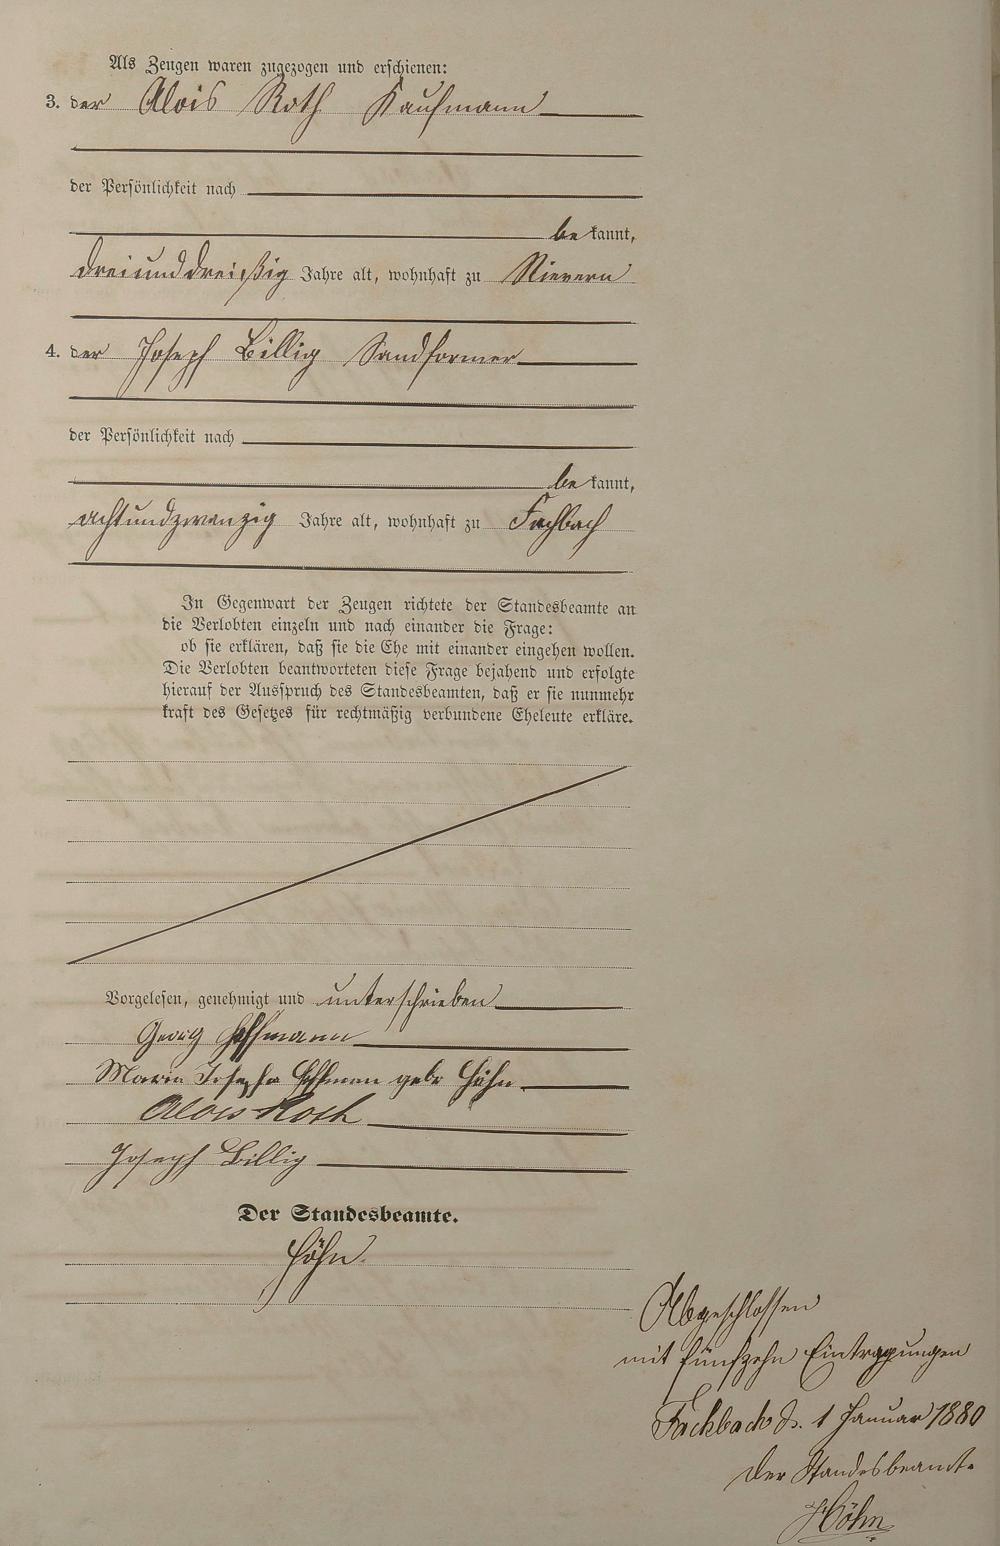 Als Zeugen waren zugezogen und erschienen:
3. der Alois Roth Kaufmann
der Persönlichkeit nach
be kannt,
dreiunddreißig Jahre alt, wohnhaft zu Nievern
4. der Joseph Billig Sandformer
der Persönlichkeit nach
be kannt,
achtundzwanzig Jahre alt, wohnhaft zu Fachbach
In Gegenwart der Zeugen richtete der Standesbeamte an
die Verlobten einzeln und nach einander die Frage:
ob sie erklären, daß sie die Ehe mit einander eingehen wollen.
Die Verlobten beantworteten diese Frage bejahend und erfolgte
hierauf der Ausspruch des Standesbeamten, daß er sie nunmehr
kraft des Gesetzes für rechtmäßig verbundene Eheleute erkläre.
Vorgelesen, genehmigt und unterschrieben
Georg Hoffmann
Maria Josepha Hoffman gebr Höhn
Alois Roth
Joseph Billig
Der Standesbeamte.
Höhn.
Abgeschlossen
mit fünfzehn Eintragungen
Fachbach d. 1 Januar 1880
Der Standesbeamte
Höhn